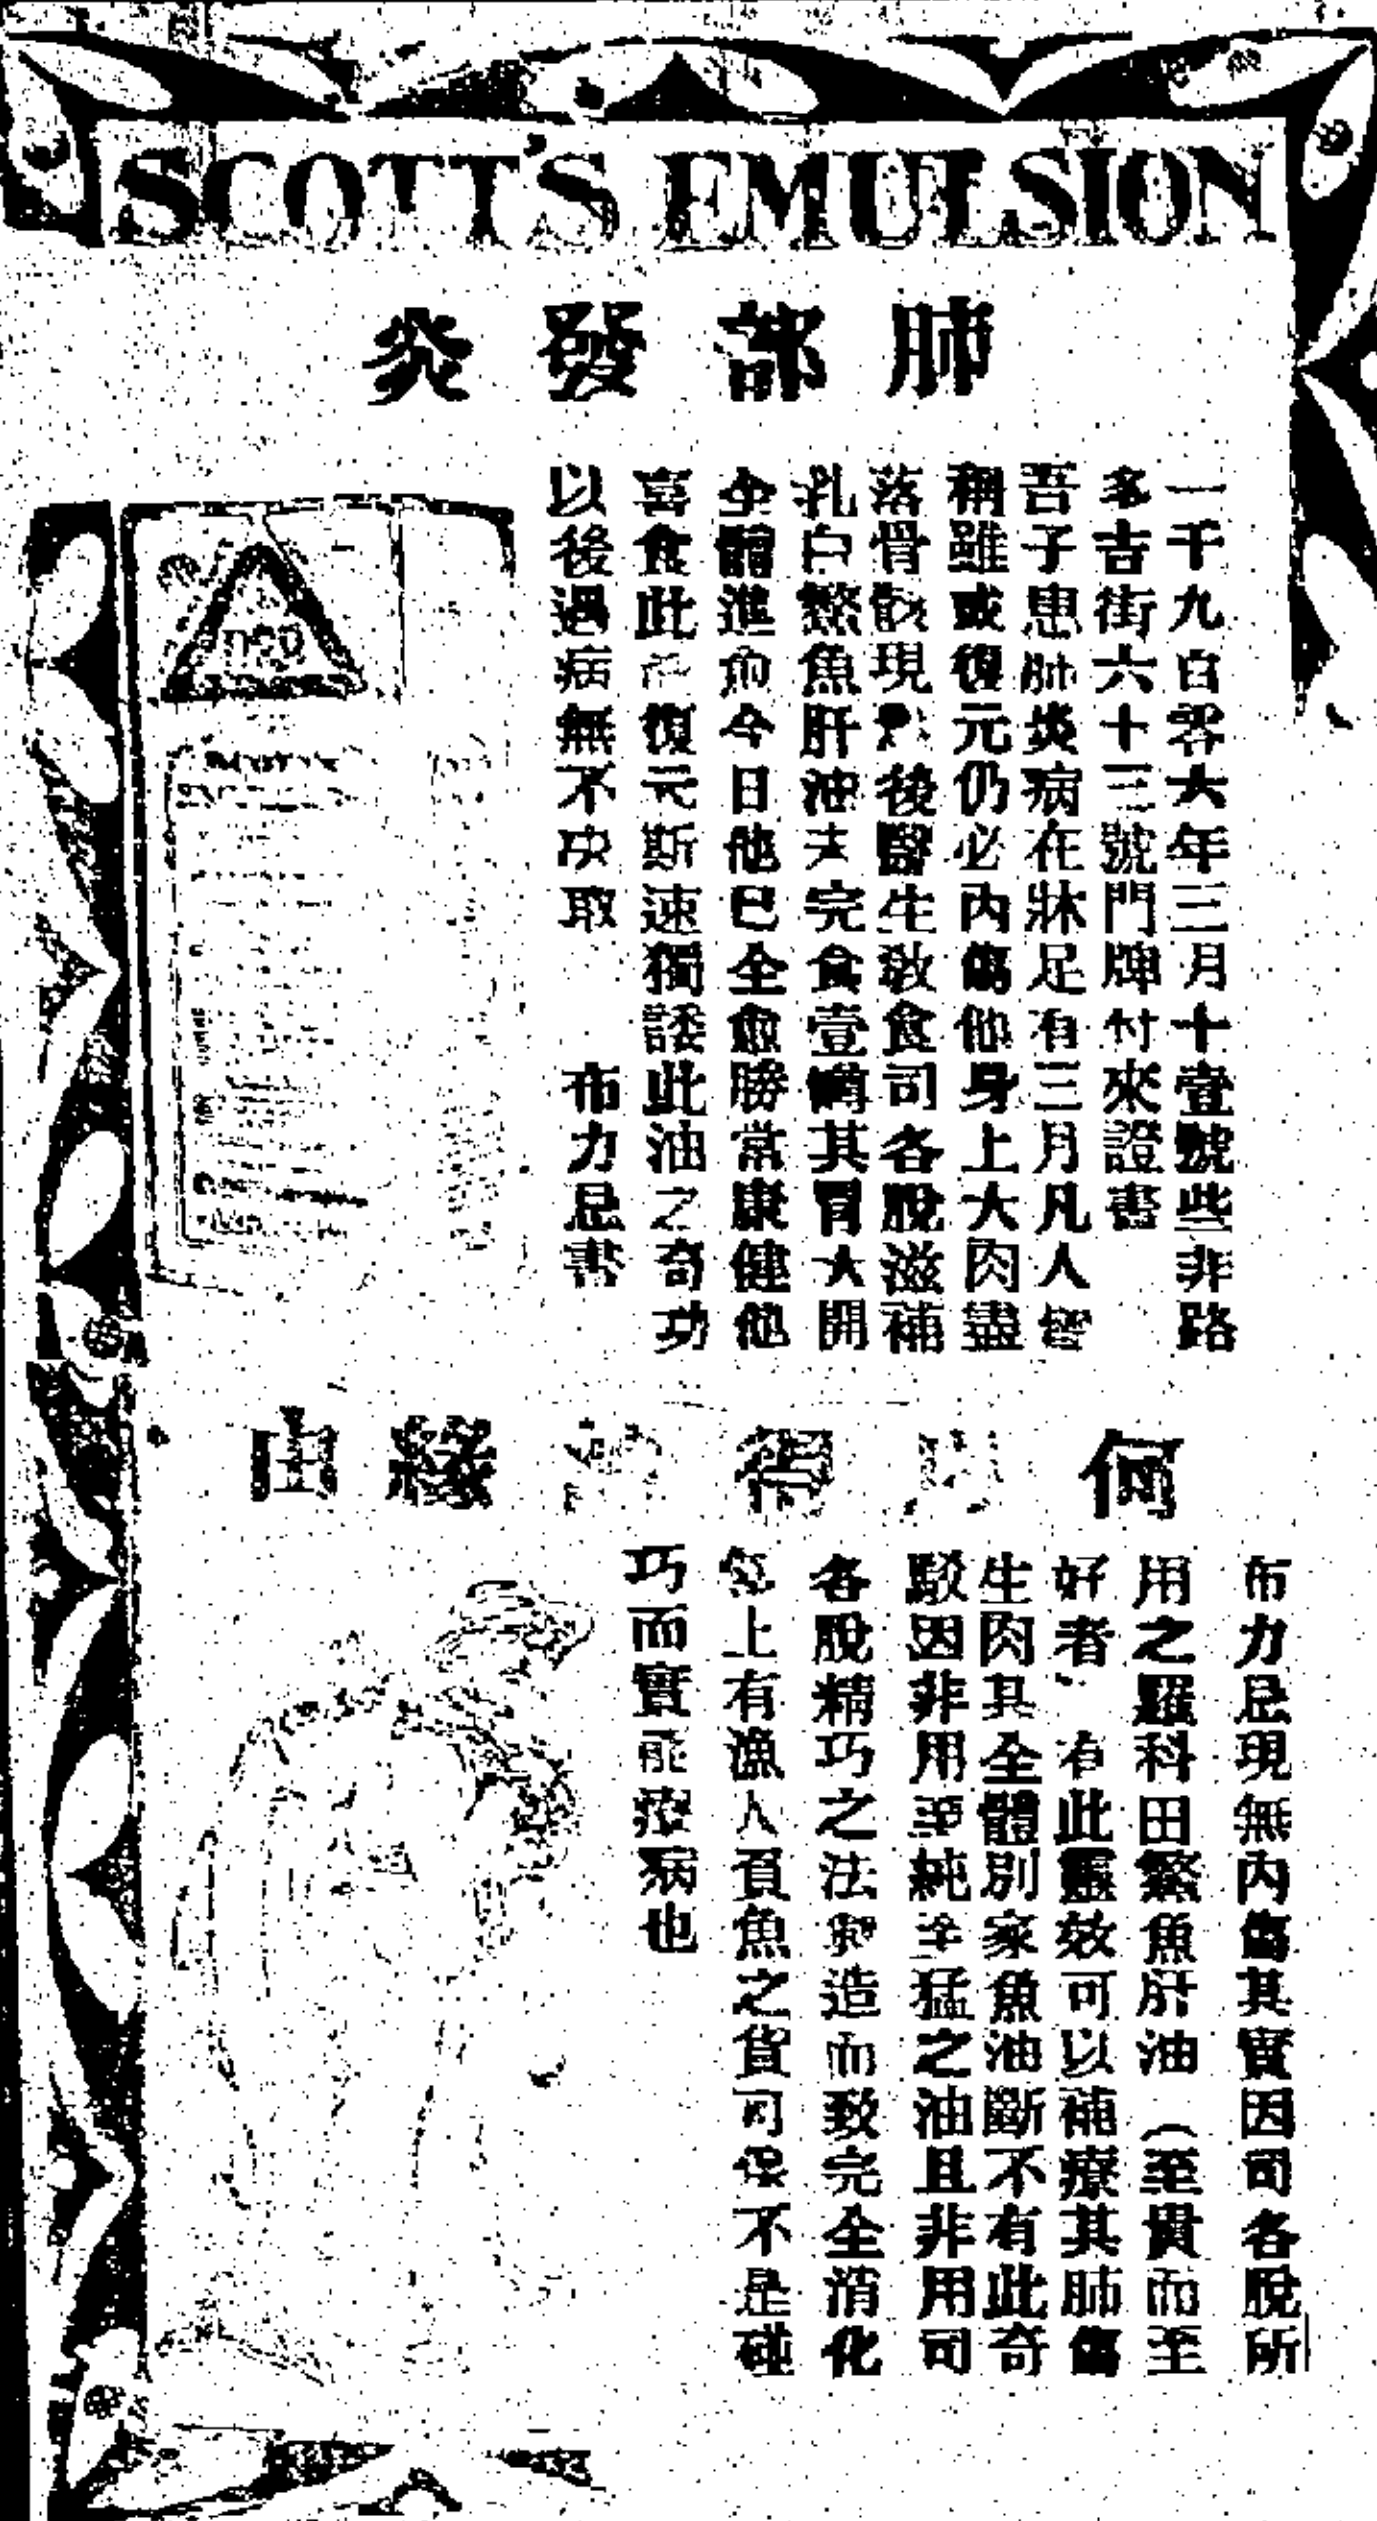 SCOTT'S EMULSION
肺部發炎
一千九百零六年三月十壹號些非路
多吉街六十三號門牌付來證書
吾子患肺炎病在牀足有三月凡人
稱雖或復元仍必內傷他身上大肉盡
落骨骸現後醫生敎食司各脫滋補
乳白鰵魚肝油夫完食壹樽其胃大開
全體進而今日他已全愈勝常康健他
喜食此復元斯速獨諉此油之奇功
以後遇病無不決取 布力忌書
何得緣由
布力忌現無內傷其實因司各脫所
用之羅科田鰵魚肝油(至貴而至
好者、有此靈效可以補療其肺傷
生肉其全體別家魚油斷不有此奇
駁因非用至純至猛之油且非用司
各脫精巧之法製造而致完全消化
上有漁人負魚之貨可保不是碰
巧而實能療病也